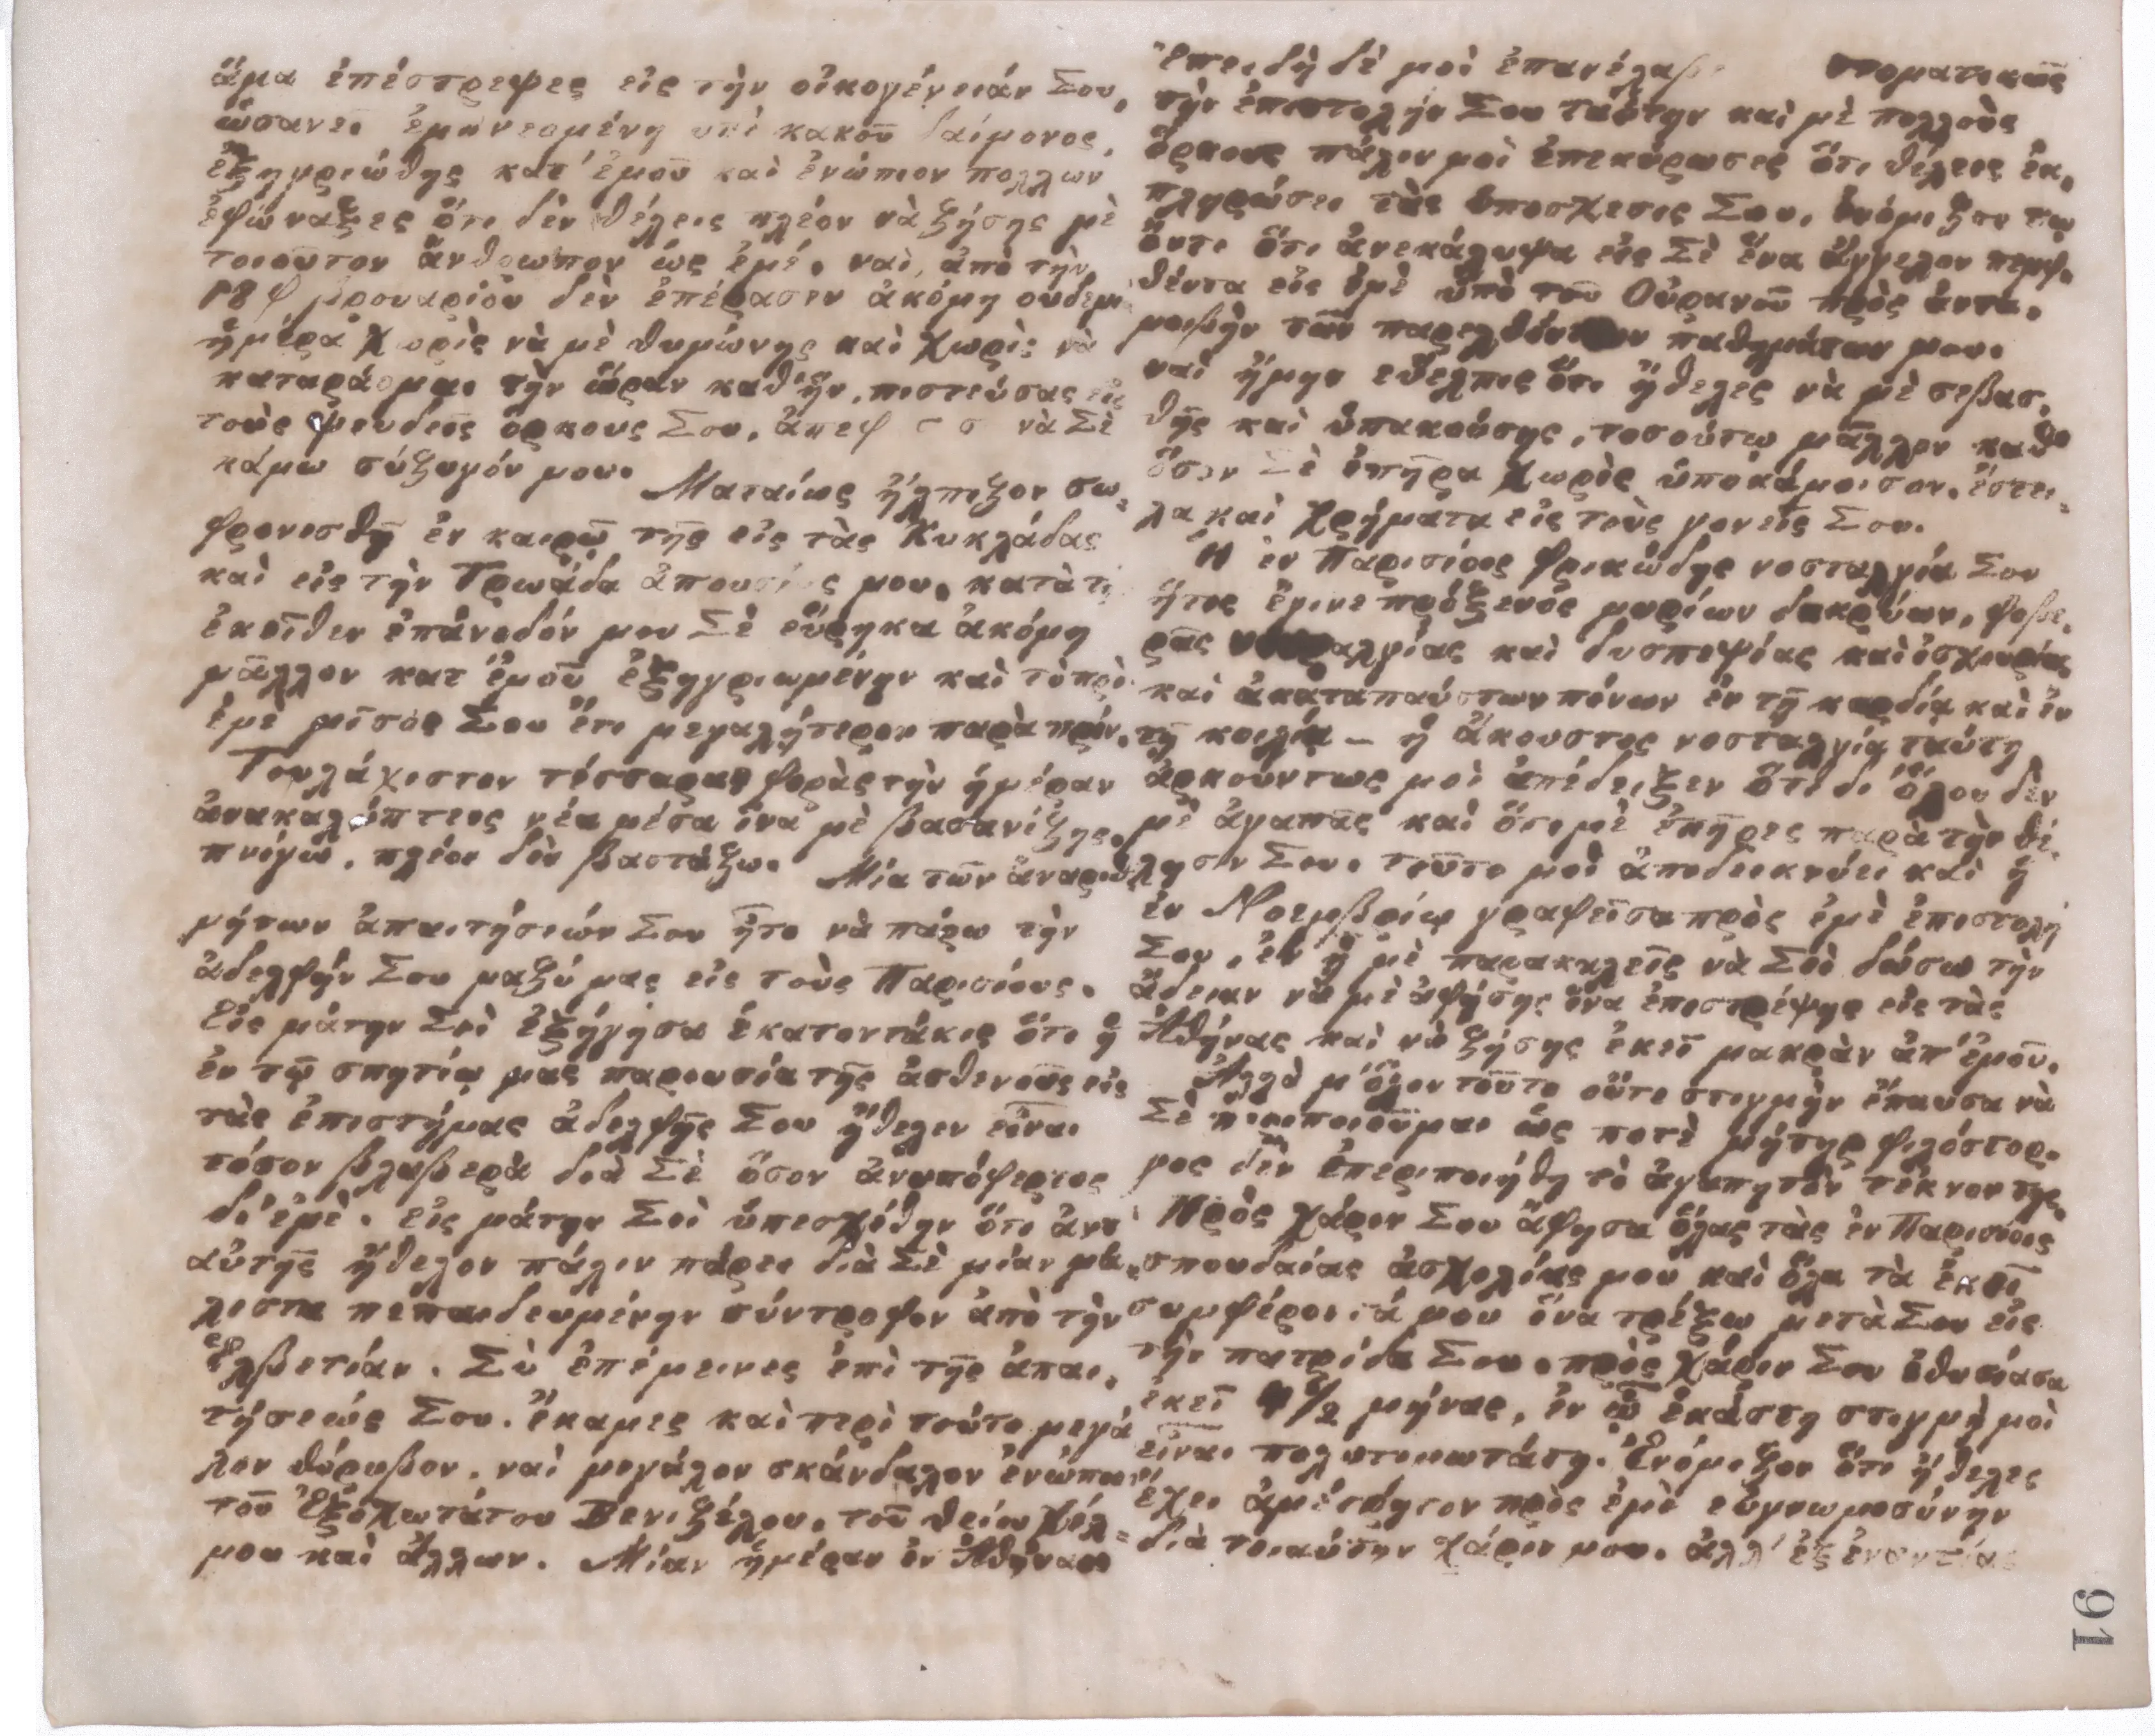 ἅμα ἐπέστρεψες εἰς τὴν οἰκογένειάν Σου,
ὡσανεὶ ἐμπνεομένη ὑπὸ κακοῦ δαίμονος,
ἐξηγριώθης κατ' ἐμοῦ καὶ ἐνώπιον πολλων
ἐφώναξες ὅτι δὲν θέλεις πλέον νὰ ζήσῃς μὲ
τοιοῦτον ἄνθρωπον ὡς ἐμέ. ναὶ, ἀπὸ τὴν
18 φβρουαρίου δὲν ἐπέρασεν ἀκόμη οὐδεμι
ἡμέρα χωρὶς νὰ μὲ θυμώνῃς καὶ χωρὶς νὰ
καταράομαι τὴν ὥραν καθ' ἣν, πιστεύσας εἰς
τοὺς ψευδεῖς ὅρκους Σου, νὰ Σὲ
κάμω σύζυγόν μου. Ματαίως ἤλπιζον σω-
φρονισθῇ ἐν καιρῷ τῆς εἰς τὰς Κυκλάδας
καὶ εἰς τὴν Τρωάδα ἀπουσίας μου. κατὰ τὴ
ἐκεῖθεν ἐπάνοδόν μου Σὲ εὕρηκα ἀκόμη
μᾶλλον κατ' ἐμοῦ ἐξηγριωμένην καὶ τὸ πρὸ
ἐμὲ μῖσός Σου ἔτι μεγαλήτερον παρὰ πρίν.
Τουλάχιστον τέσσαρας φορὰς τὴν ἡμέραν
ἀνακαλύπτεις νέα μέσα ἵνα μὲ βασανίζῃς.
πνίγω. πλέον δὲν βαστάζω. Μία τῶν ἀναριθ-
μήτων ἀπαιτήσεών Σου ἦτο νὰ πάρω τὴν
ἀδελφήν Σου μαζύ μας εἰς τοὺς Παρισίους.
Εἰς μάτην Σοὶ ἐξήγησα ἑκατοντάκις ὅτι ἡ
ἐν τῷ σπητίῳ μας παρουσία τῆς ἀσθενοῦς εἰς
τὰς ἐπιστήμας ἀδελφῆς Σου ἤθελεν εἶναι
τόσον βλαβερὰ διὰ Σὲ ὅσον ἀνυπόφερτος
δι' ἐμέ. εἰς μάτην Σοὶ ὑπεσχέθην ὅτι ἀντ'
αὐτῆς ἤθελον πάλιν πάρει διὰ Σὲ μίαν μά-
λιστα πεπαιδευμένην σύντροφον ἀπὸ τὴν
Ἑλβετίαν. Σὺ ἐπέμεινες ἐπὶ τῆς ἀπαι-
τήσεώς Σου. ἔκαμες καὶ περὶ τούτο μεγά
λον θόρυβον, ναὶ μεγάλον σκάνδαλον ἐνώπιον
τοῦ Ἐξοχωτάτου Βενιζέλου, τοῦ θείου
μου καὶ ἄλλων. Μίαν ἡμέραν ἐν Ἀθήναις
Ἐπειδὴ δὲ μοὶ ἐπανέλαβες στοματικῶς
τὴν ἐπιστολήν Σου ταύτην καὶ μὲ πολλοὺς
ὅρκους πάλιν μοὶ ἐπεκύρωσες ὅτι θέλεις ἐκ-
πληρώσει τὰς ὑποσχεσις Σου, ἐνόμιζον τῳ
ὄντι ὅτι ἀνεκάλυψα εἰς Σὲ ἕνα ἄγγελον πεμφ-
θέντα εἰς ἐμὲ ὑπὸ τοῦ Οὐρανοῦ πρὸς ἀντα-
μοιβὴν τῶν παρελθόντων παθημάτων μου.
ναὶ ἤμην εὔελπις ὅτι ἤθελες νὰ μὲ σεβασ-
θῇς καὶ ὑπακούσῃς, τοσούτῳ μᾶλλον καθ'
ὅσον Σὲ ἐπῆρα χωρὶς ὑποκάμισον. ἔστει-
λα καὶ χρήματα εἰς τοὺς γονεῖς Σου.
Ἡ ἐν Παρισίοις φρικώδης νοσταλγία Σου
ἥτις ἔγινε πρόξενός μυρίων δακρύων, φοβε-
ρᾶς καὶ δυσπεψίας καὶ ἰσχουρίας
καὶ ἀκαταπαύστων πόνων ἐν τῇ καρδίᾳ καὶ ἐν
τῇ κοιλίᾳ – ἡ ἄκουστος νοσταλγία ταύτη
ἀρκούντως μοὶ ἀπέδειξεν ὅτι δι' ὅλου δὲν
μὲ ἀγαπᾷς καὶ ὅτι μὲ ἐπῆρες παρὰ τὴν θέ-
λησίν Σου. τοῦτο μοὶ ἀποδεικνύει καὶ ἡ
ἐν Νοεμβρίῳ γραφεῖσα πρὸς ἐμὲ ἐπιστολή
Σου, ἐν ᾗ μὲ παρακαλεῖς νὰ Σοὶ δώσω τὴν
ἄδειαν νὰ μὲ ἀφήσῃς ἵνα ἐπιστρέψῃς εἰς τὰς
Ἀθήνας καὶ νὰ ζήσῃς ἐκεῖ μακρὰν ἀπ' ἐμοῦ.
Ἀλλὰ μ' ὅλον τοῦτο οὔτε στιγμὴν ἔπαυσα νὰ
Σὲ περιποιοῦμαι ὡς ποτὲ μήτηρ φιλόστορ-
γος δὲν ἐπεριποιήθη τὸ ἀγαπητὸν τέκνον της.
Πρὸς χάριν Σου ἄφησα ὅλας τὰς ἐν Παρισίοις
σπουδαίας ἀσχολίας μου καὶ ὅλα τὰ ἐκεῖ
συμφέροντά μου ἵνα τρέξω μετὰ Σου εἰς
τὴν πατρίδα Σου. πρὸς χάριν Σου ἐθυσίασα
ἐκεῖ 4½ μήνας, ἐν ᾧ ἑκάστη στιγμὴ μοὶ
εἶναι πολυτιμωτάτη. Ἐνόμιζον ὅτι ἤθελες
ἔχει ἀμέτρητον πρὸς ἐμὲ εὐγνωμοσύνην
διὰ τοιαύτην χάριν μου. ἀλλ' ἐξ ἐναντίας
91